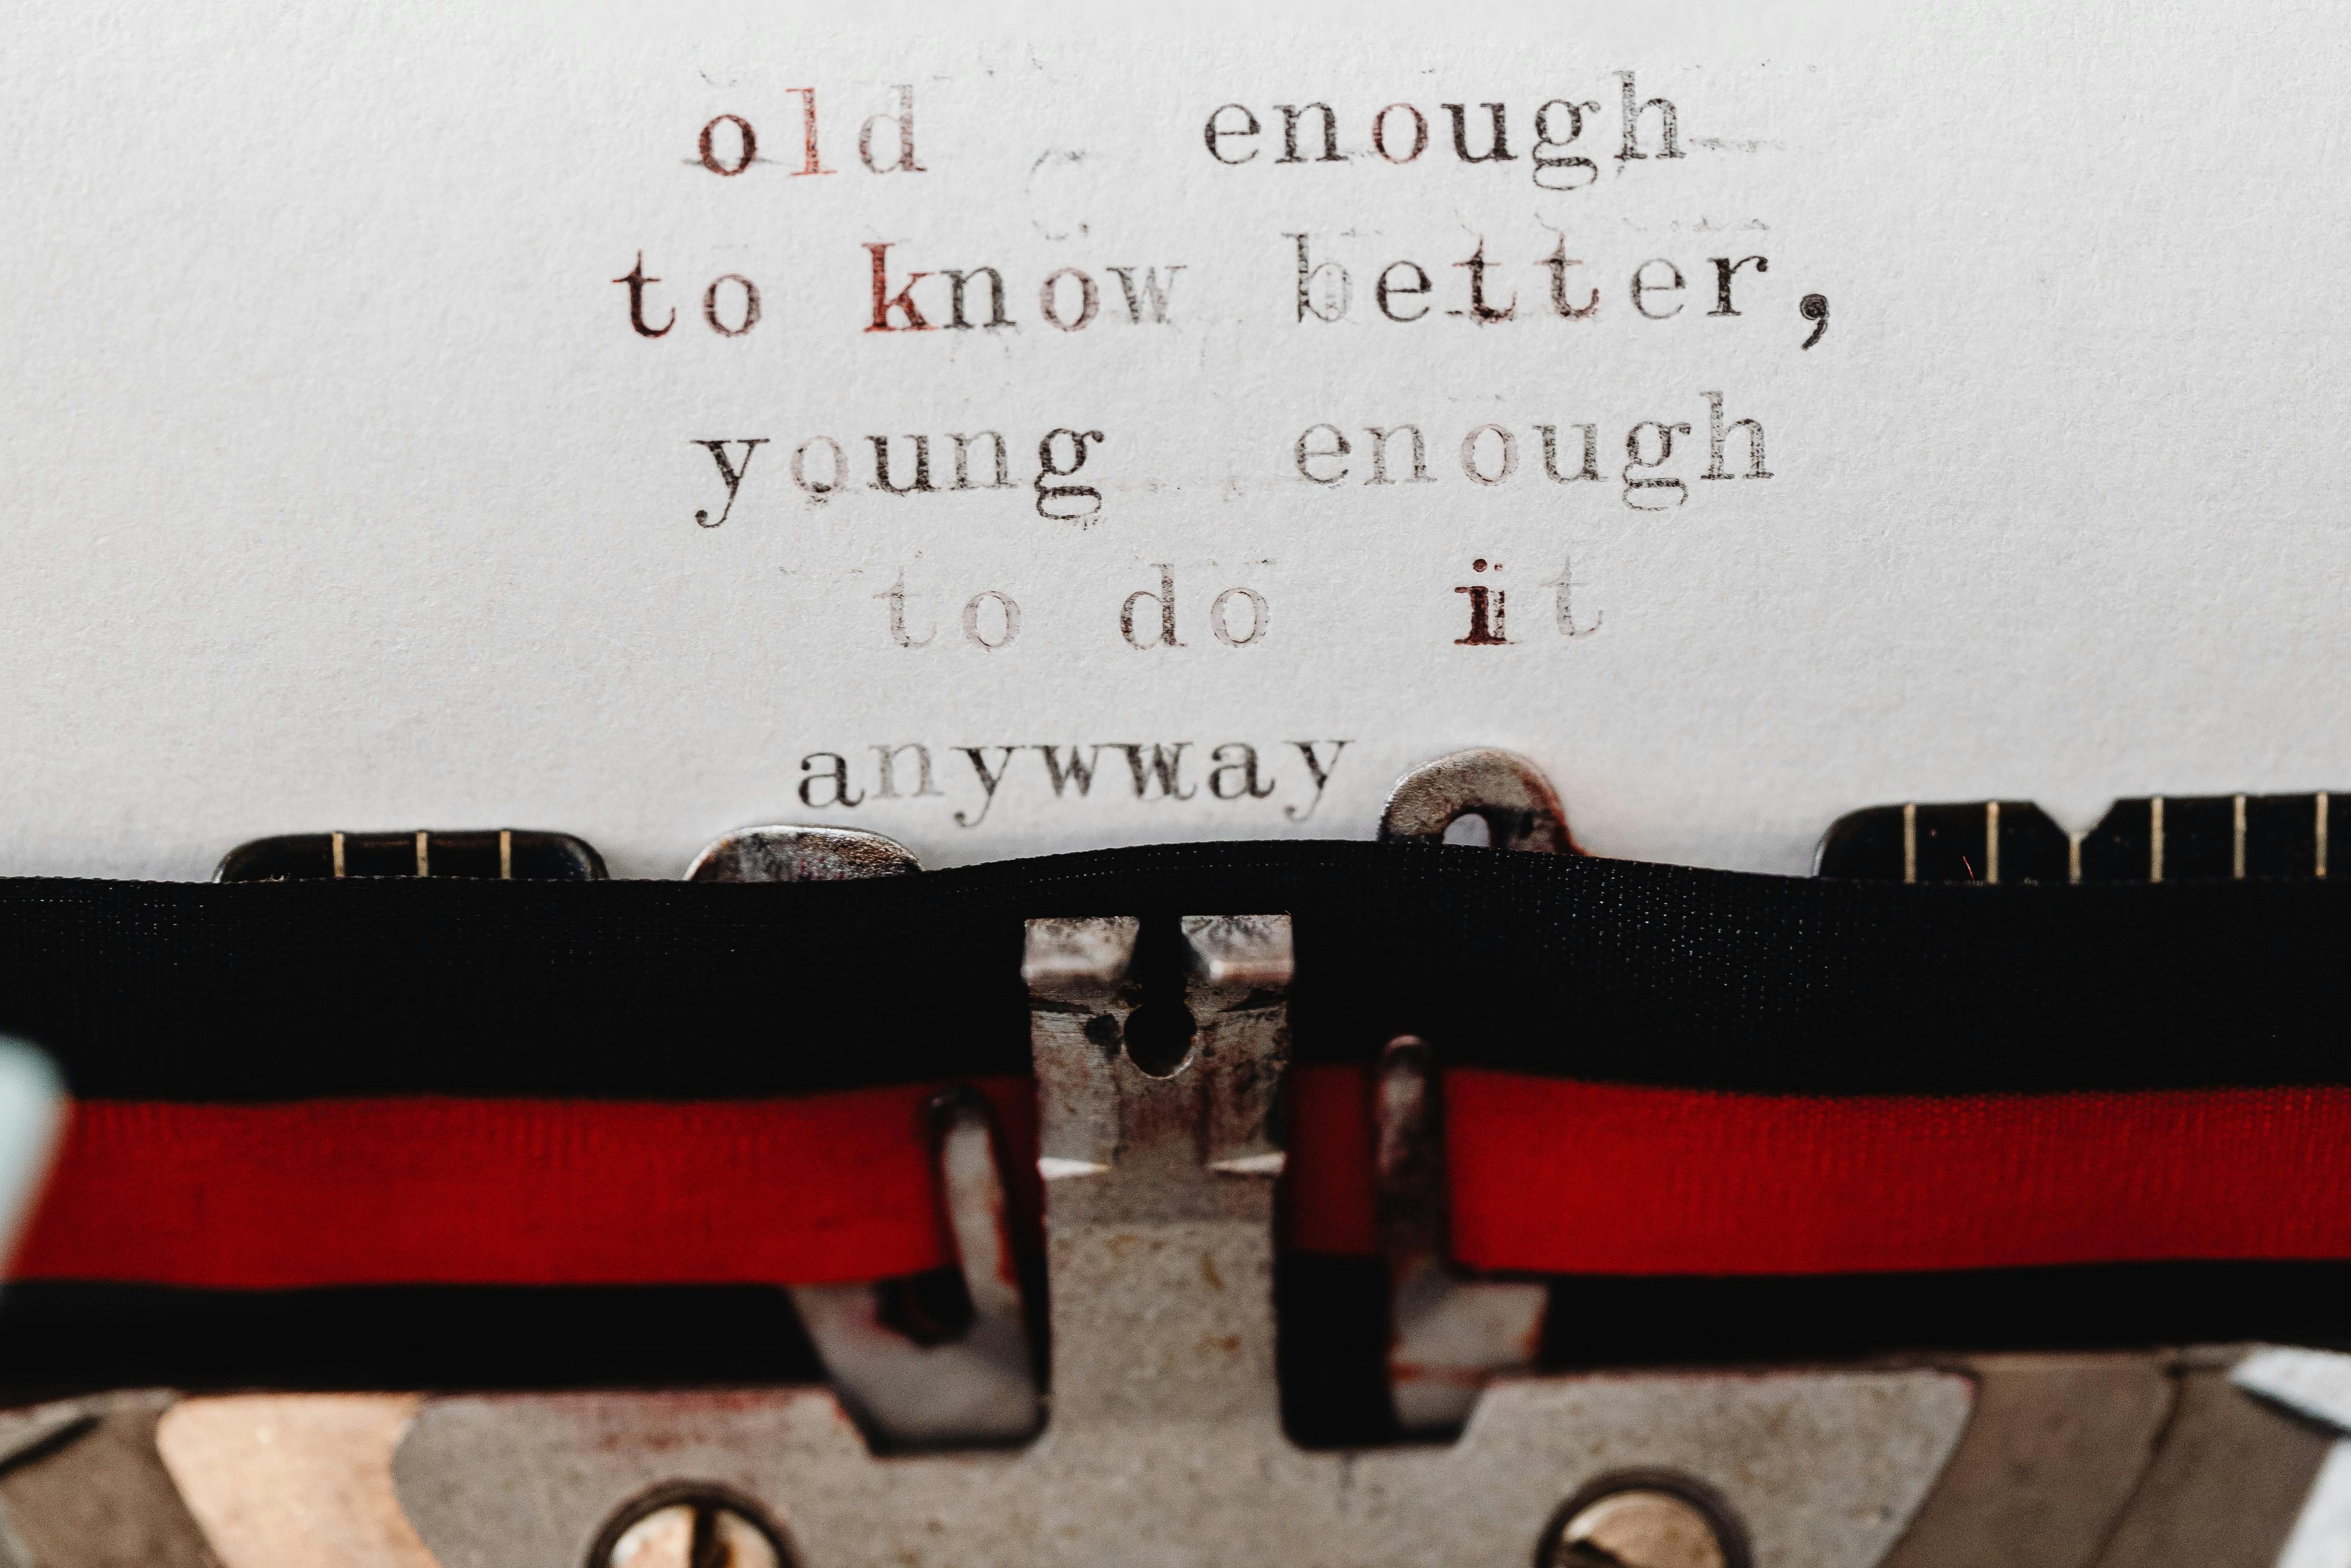 old enough
to know better,
young enough
to do it
anywway